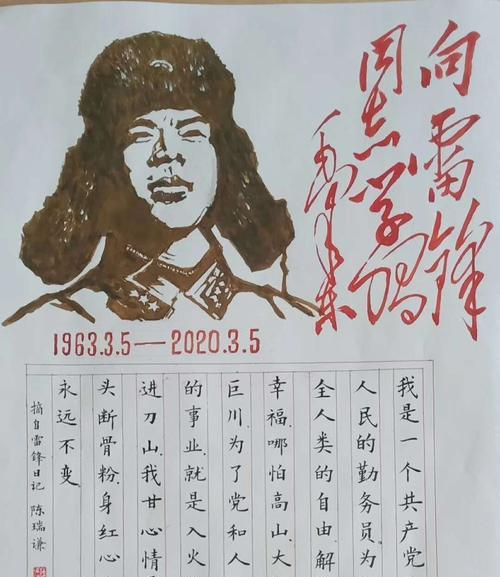 向雷锋
同志学习
毛泽东
1963.3.5—2020.3.5
我是一个共产党
人民的勤务员为
全人类的自由解
幸福哪怕高山大
巨川为了党和人
的事业就是入火
进刀山我甘心情
头断骨粉身红心
永远不变
摘自雷锋日记 陈瑞谦